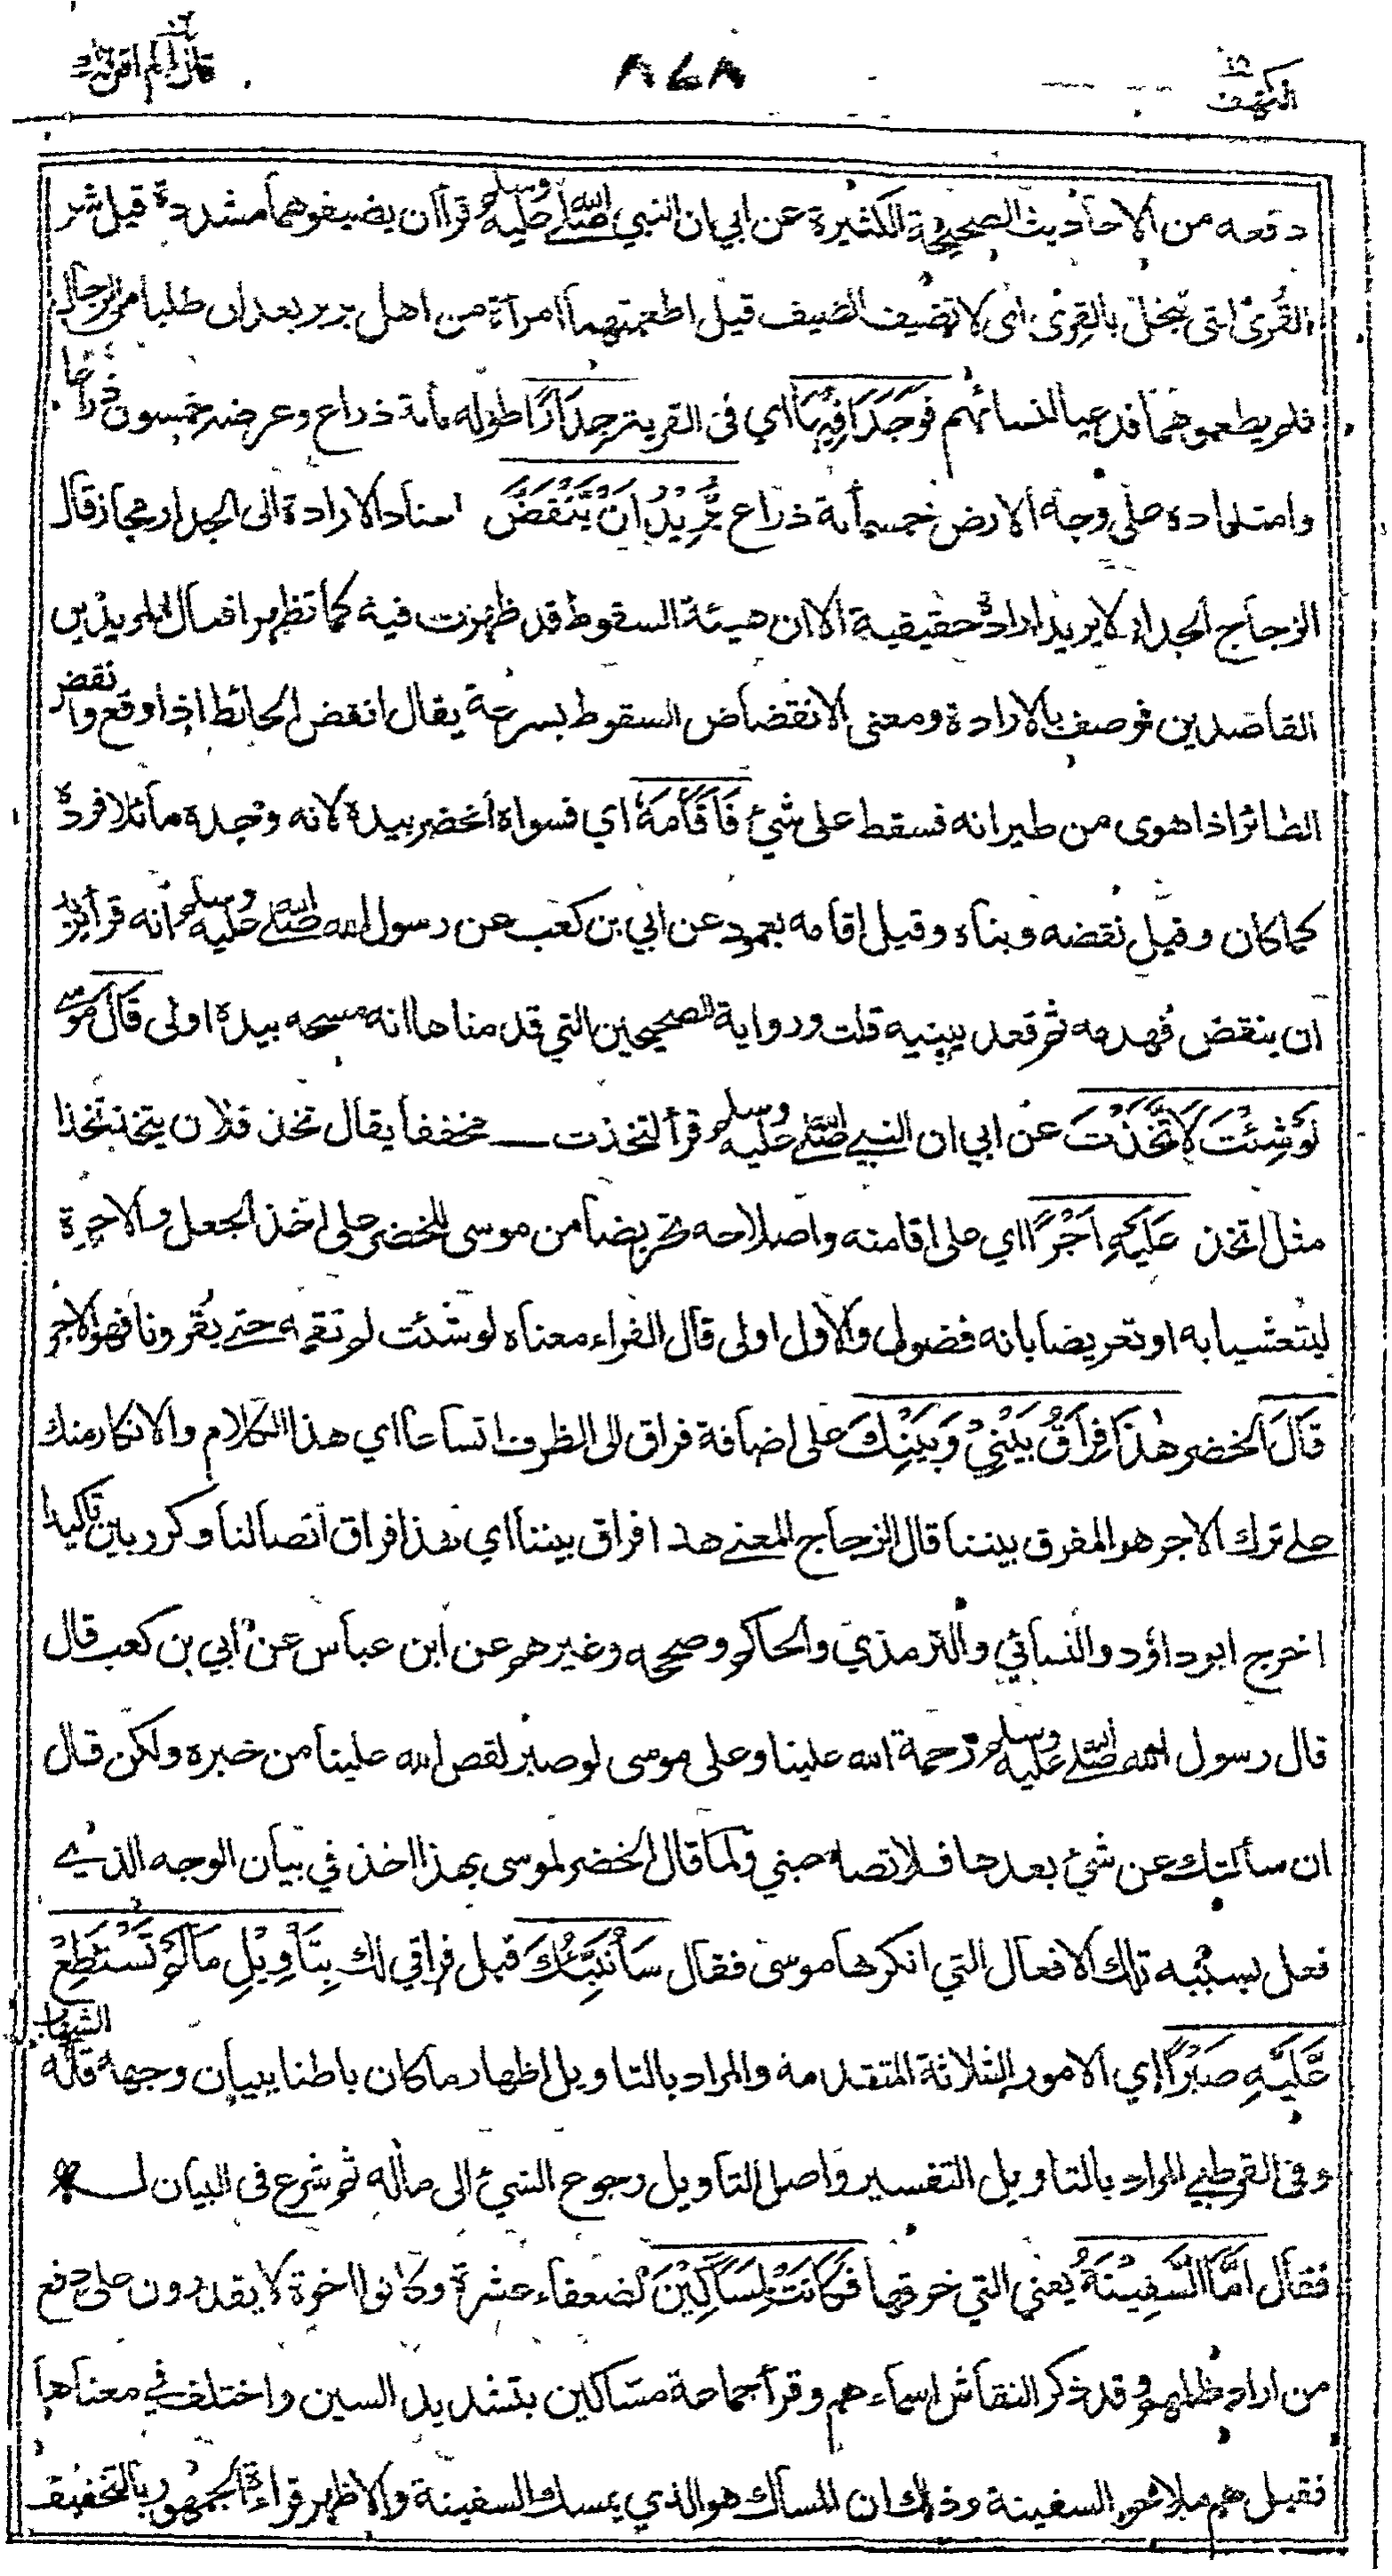 الكهف ١٨ ٨٧٨ قال الم اقل لك
دفعه من الاحاديث الصحيحة الكثيرة عن ابي ان النبي صلى الله عليه وسلم قرأ ان يضيفوهما مشددة قيل شر
القُرى التي تبخل بالقِرى اى لا تضيف الضيف قيل اطعمتهما امرأة من اهل بربر بعد ان طلبا من الرجال
فلم يطعموهما فدعيا لنسائهم فَوَجَدَا فِيْهَا اي فى القرية جِدَارًا طوله مأئة ذراع وعرضه خمسون ذراعا
وامتداده على وجه الارض خمسمأئة ذراع يُّرِيْدُ اَنْ يَّنْقَضَّ اسناد الارادة الى الجدار مجاز قال
الزجاج الجدار لا يريد ارادة حقيقية الا ان هيئة السقوط قد ظهرت فيه كما تظهر افعال المريدين
القاصدين فوصف بالارادة ومعنى الانقضاض السقوط بسرعة يقال انقض الحائط اذا وقع وانقض
الطائر اذا هوى من طيرانه فسقط على شئ فَاَقَامَهٗ اي فسواه الخضر بيده لانه وجده مائلا فرده
كما كان وقيل نقضه وبناه وقيل اقامه بعمود عن ابي بن كعب عن رسول الله صلى الله عليه وسلم انه قرأ يريد
ان ينقض فهدمه ثم قعد يبنيه قلت ورواية الصحيحين التي قدمناها انه مسحه بيده اولى قَالَ موسى
لَوْ شِئْتَ لَاتَّخَذْتَ عن ابي ان النبي صلى الله عليه وسلم قرأ لتخذت مخففا يقال تخذ فلان يتخذ تخذا
مثل اتخذ عَلَيْهِ اَجْرًا اي على اقامته واصلاحه تحريضا من موسى للخضر على اخذ الجعل والاجرة
ليتعشيا به او تعريضا بانه فضولى والاول اولى قال الفراء معناه لو شئت لم تقمه حتى يُقرونا فهو الاجر
قَالَ الخضر هٰذَا فِرَاقُ بَيْنِيْ وَبَيْنِكَ على اضافة فراق الى الظرف اتساعا اي هذا الكلام والانكار منك
على ترك الاجر هو المفرق بيننا قال الزجاج المعنى هذا فراق بيننا اي هذا فراق اتصالنا وكرر بين تاكيدا
اخرج ابو داؤد والنسائي والترمذي والحاكم وصححه وغيرهم عن ابن عباس عن ابي بن كعب قال
قال رسول الله صلى الله عليه وسلم رحمة الله علينا وعلى موسى لو صبر لقص الله علينا من خبره ولكن قال
ان سألتك عن شئ بعدها فلا تصاحبني ولما قال الخضر لموسى بهذا اخذ في بيان الوجه الذي
فعل بسببه تلك الافعال التي انكرها موسى فقال سَاُنَبِّئُكَ قبل فراقي لك بِتَاْوِيْلِ مَا لَمْ تَسْتَطِعْ
عَّلَيْهِ صَبْرًا اي الامور الثلاثة المتقدمة والمراد بالتاويل اظهار ما كان باطنا ببيان وجهه قاله الشهاب
وفى القرطبي المراد بالتاويل التفسير واصل التاويل رجوع الشئ الى مأله ثم شرع فى البيان له
فقال اَمَّا السَّفِيْنَةُ يعني التي خرقها فَكَانَتْ لِمَسَاكِيْنَ لضعفاء عشرة وكانوا اخوة لا يقدرون على دفع
من اراد ظلمهم وقد ذكر النقاش اسماءهم وقرأ جماعة مساكين بتشديد السين واختلف في معناها
فقيل هم ملاحو السفينة وذلك ان المساك هو الذي يمسك السفينة والاظهر قراءة الجمهور بالتخفيف